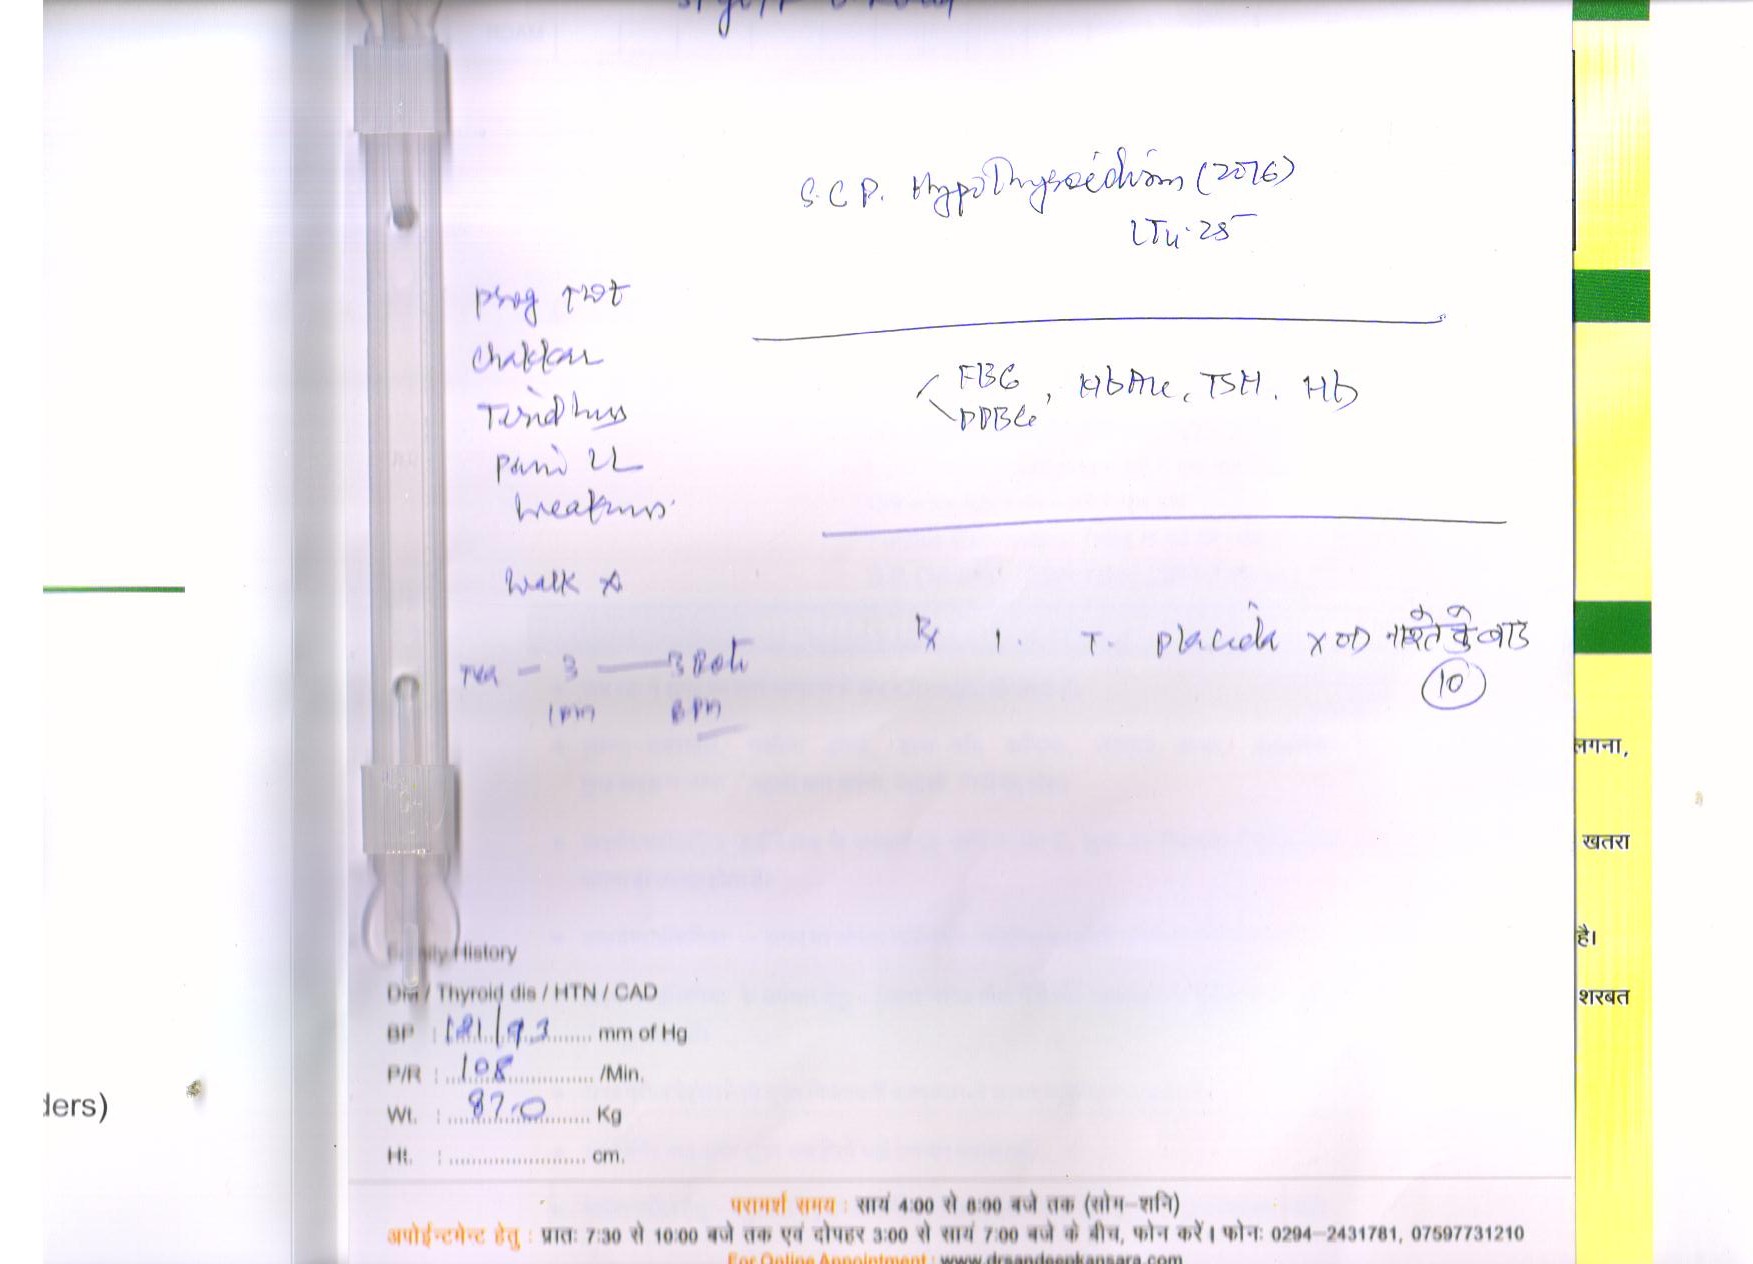 S.C.P. Hypothyroidism (2016)
LT4. 25
prog ↑ wt
chakkar
Tiredness
Pain LL
weakness.
FBG, HbA1c, TSH. Hb
PPBG
walk x
Tea - 3 — 3 Roti
1 PM 8 PM
Rx 1. T. Placida x OD नाश्ते के बाद
10
लगना,
खतरा
है।
शरबत
ders)
Family History
DM / Thyroid dis / HTN / CAD
BP : 121/93 mm of Hg
P/R : 108 /Min.
Wt. : 87.0 Kg
Ht. : cm.
परामर्श समय : सायं 4:00 से 8:00 बजे तक (सोम-शनि)
अपोईन्टमेन्ट हेतु : प्रातः 7:30 से 10:00 बजे तक एवं दोपहर 3:00 से सायं 7:00 बजे के बीच, फोन करें। फोन: 0294-2431781, 07597731210
For Online Appointment : www.drsandeepkansara.com